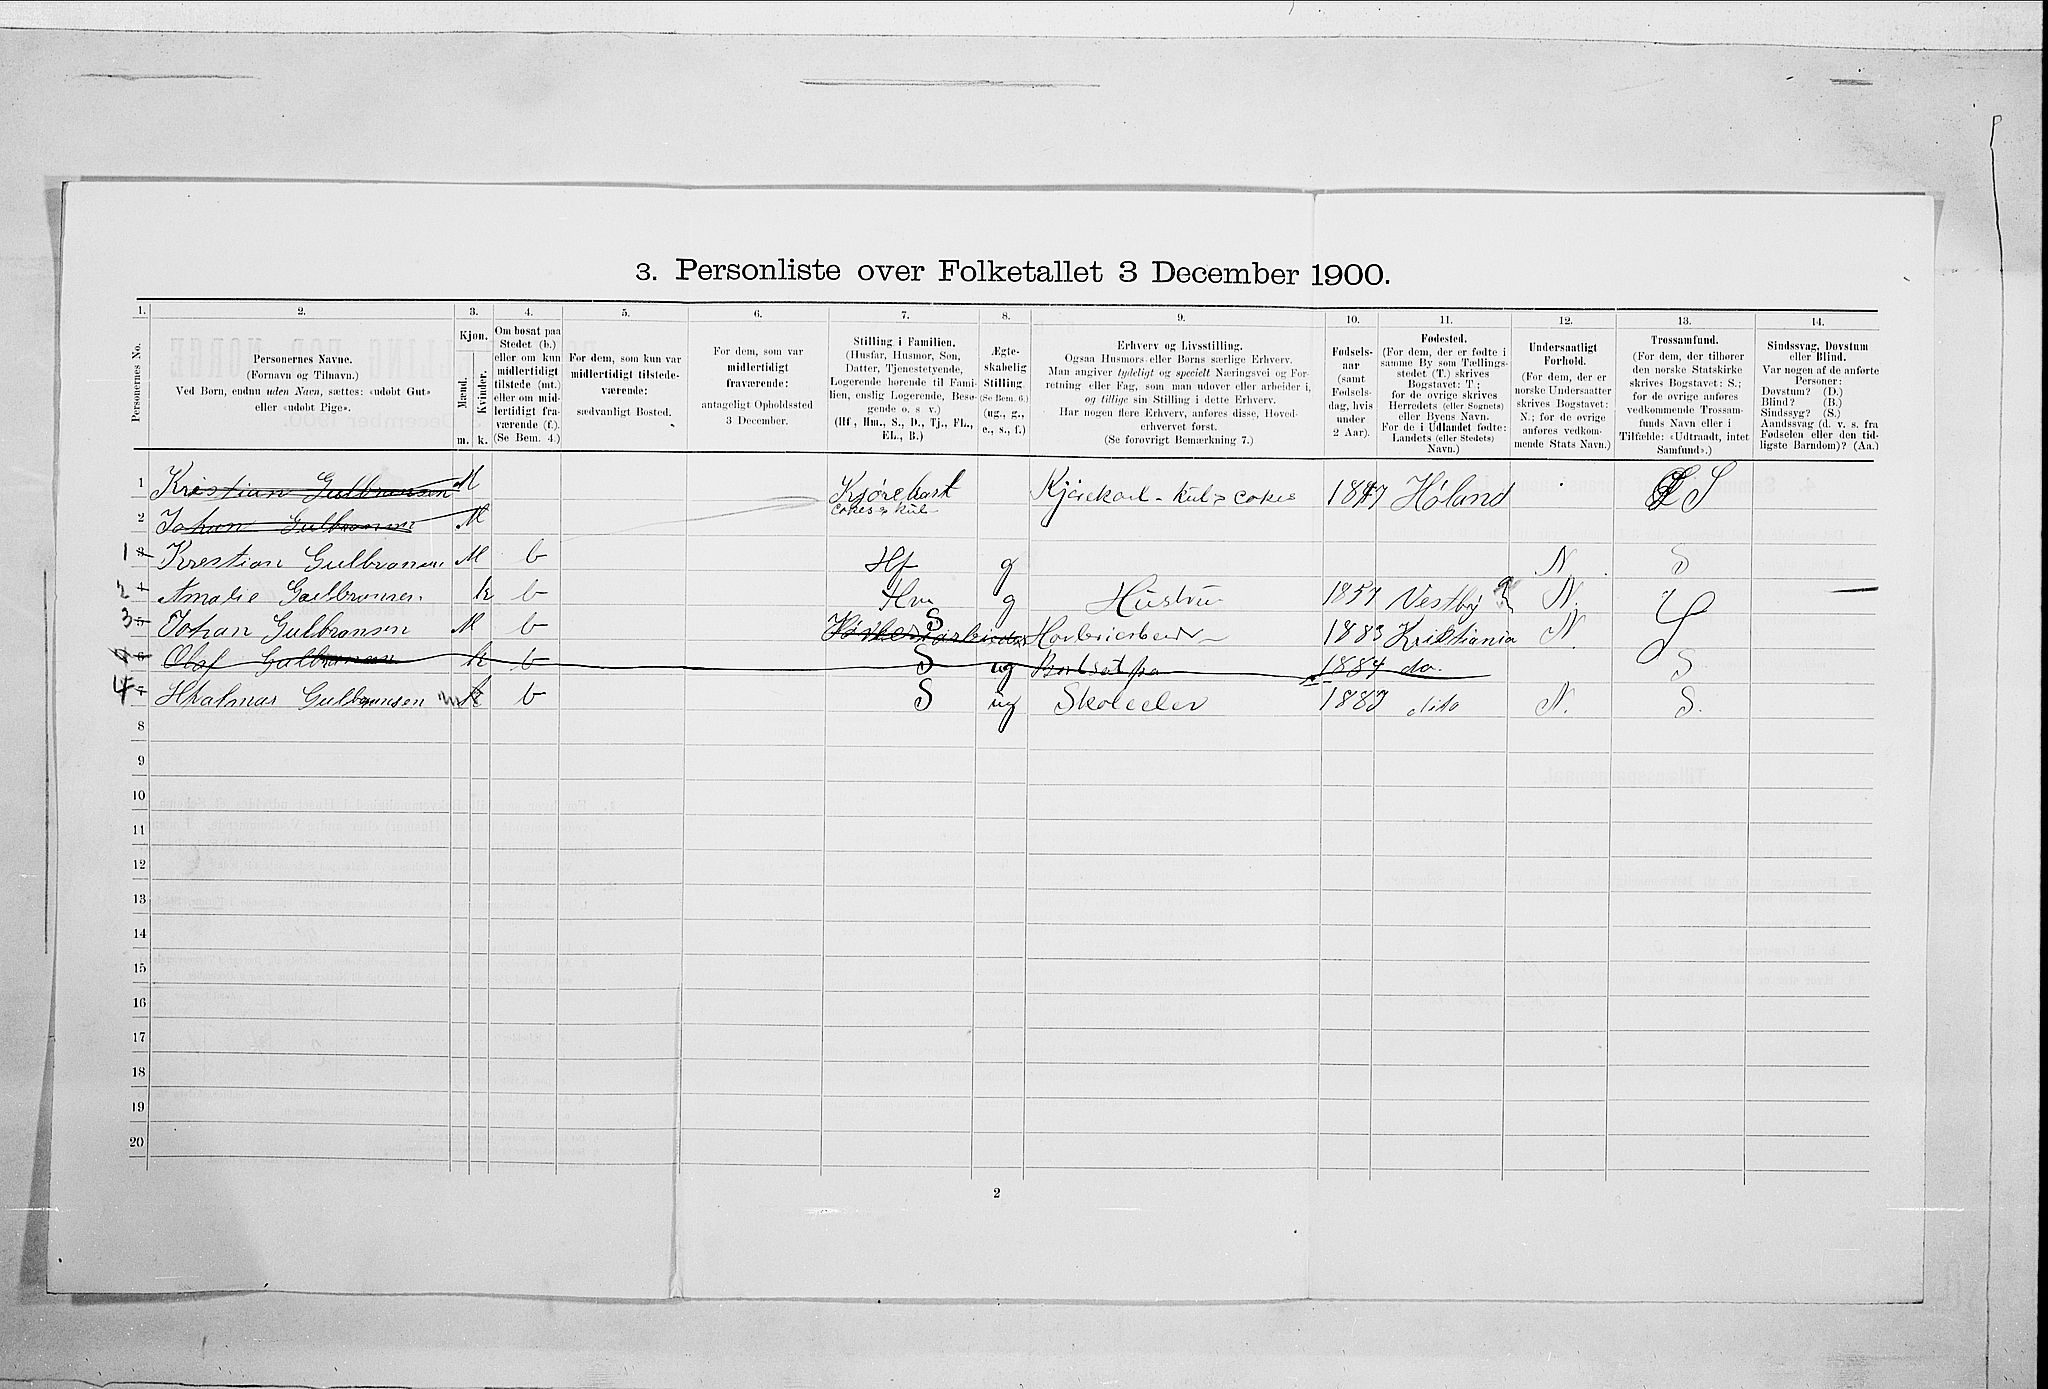 3. Personliste over Folketallet 3 December 1900.
1. 2. 3. 4. 5. 6. 7. 8. 9. 10. 11. 12. 13. 14.
Personernes No.
Personernes Navne.
(Fornavn og Tilnavn.)
Ved Børn, endnu uden Navn, sættes: «udøbt Gut»
eller «udøbt Pige».
Kjøn.
Mænd.
Kvinder.
m. k.
Om bosat paa
Stedet (b.)
eller om kun
midlertidigt
tilstede (mt.)
eller om mid-
lertidigt fra-
værende (f.).
(Se Bem. 4.)
For dem, som kun var
midlertidigt tilstede-
værende:
sædvanligt Bosted.
For dem, som var
midlertidigt
fraværende:
antageligt Opholdssted
3 December.
Stilling i Familien.
(Husfar, Husmor, Søn,
Datter, Tjenestetyende,
Logerende hørende til Fami-
lien, enslig Logerende, Besø-
gende o. s v.)
(Hf, Hm., S., D., Tj., FL.,
EL., B.)
Ægte-
skabelig
Stilling.
(Se Bem. 6.)
(ug., g.,
e., s., f.)
Erhverv og Livsstilling.
Ogsaa Husmors eller Børns særlige Erhverv.
Man angiver tydeligt og specielt Næringsvei og For-
retning eller Fag, som man udover eller arbeider i,
og tillige sin Stilling i dette Erhverv.
Har nogen flere Erhverv, anføres disse, Hoved-
erhvervet først.
(Se forøvrigt Bemærkning 7.)
Fødsels-
aar
(samt
Fødsels-
dag, hvis
under
2 Aar).
Fødested.
(For dem, der er fødte i
samme By som Tællings-
stedet (T.) skrives
Bogstavet: T.;
for de øvrige skrives
Herredets (eller Sognets)
eller Byens Navn.
For de i Udlandet fødte:
Landets (eller Stedets)
Navn.)
Undersaatligt
Forhold.
(For dem, der er
norske Undersaatter
skrives Bogstavet:
N.; for de øvrige
anføres vedkom-
mende Stats Navn.)
Trossamfund.
(For dem, der tilhører
den norske Statskirke
skrives Bogstavet: S.;
for de øvrige anføres
vedkommende Trossam-
funds Navn eller i
Tilfælde: «Udtraadt, intet
Samfund».)
Sindssvag, Døvstum
eller Blind.
Var nogen af de anførte
Personer:
Døvstum? (D.)
Blind? (B.)
Sindssyg? (S.)
Aandssvag (d. v. s. fra
Fødselen eller den tid-
ligste Barndom)? (Aa.)
1 Kristian Gulbransen M Kjørekarl cokes & kul Kjørekarl - kul & cokes 1847 Høland S
2 Johan Gulbransen M
1 3 Krestian Gulbransen M b Hf g N. S
2 4 Amalie Gulbransen k b Hm g Hustru 1857 Vestby N.
3 5 Johan Gulbransen M b S 1883 Kristiania N. S
6 Olaf Gulbransen k b S ug 1884 do. S
4 7 Hjalmar Gulbransen m k b S ug Skoleelev 1887 dito N. S.
8
9
10
11
12
13
14
15
16
17
18
19
20
2